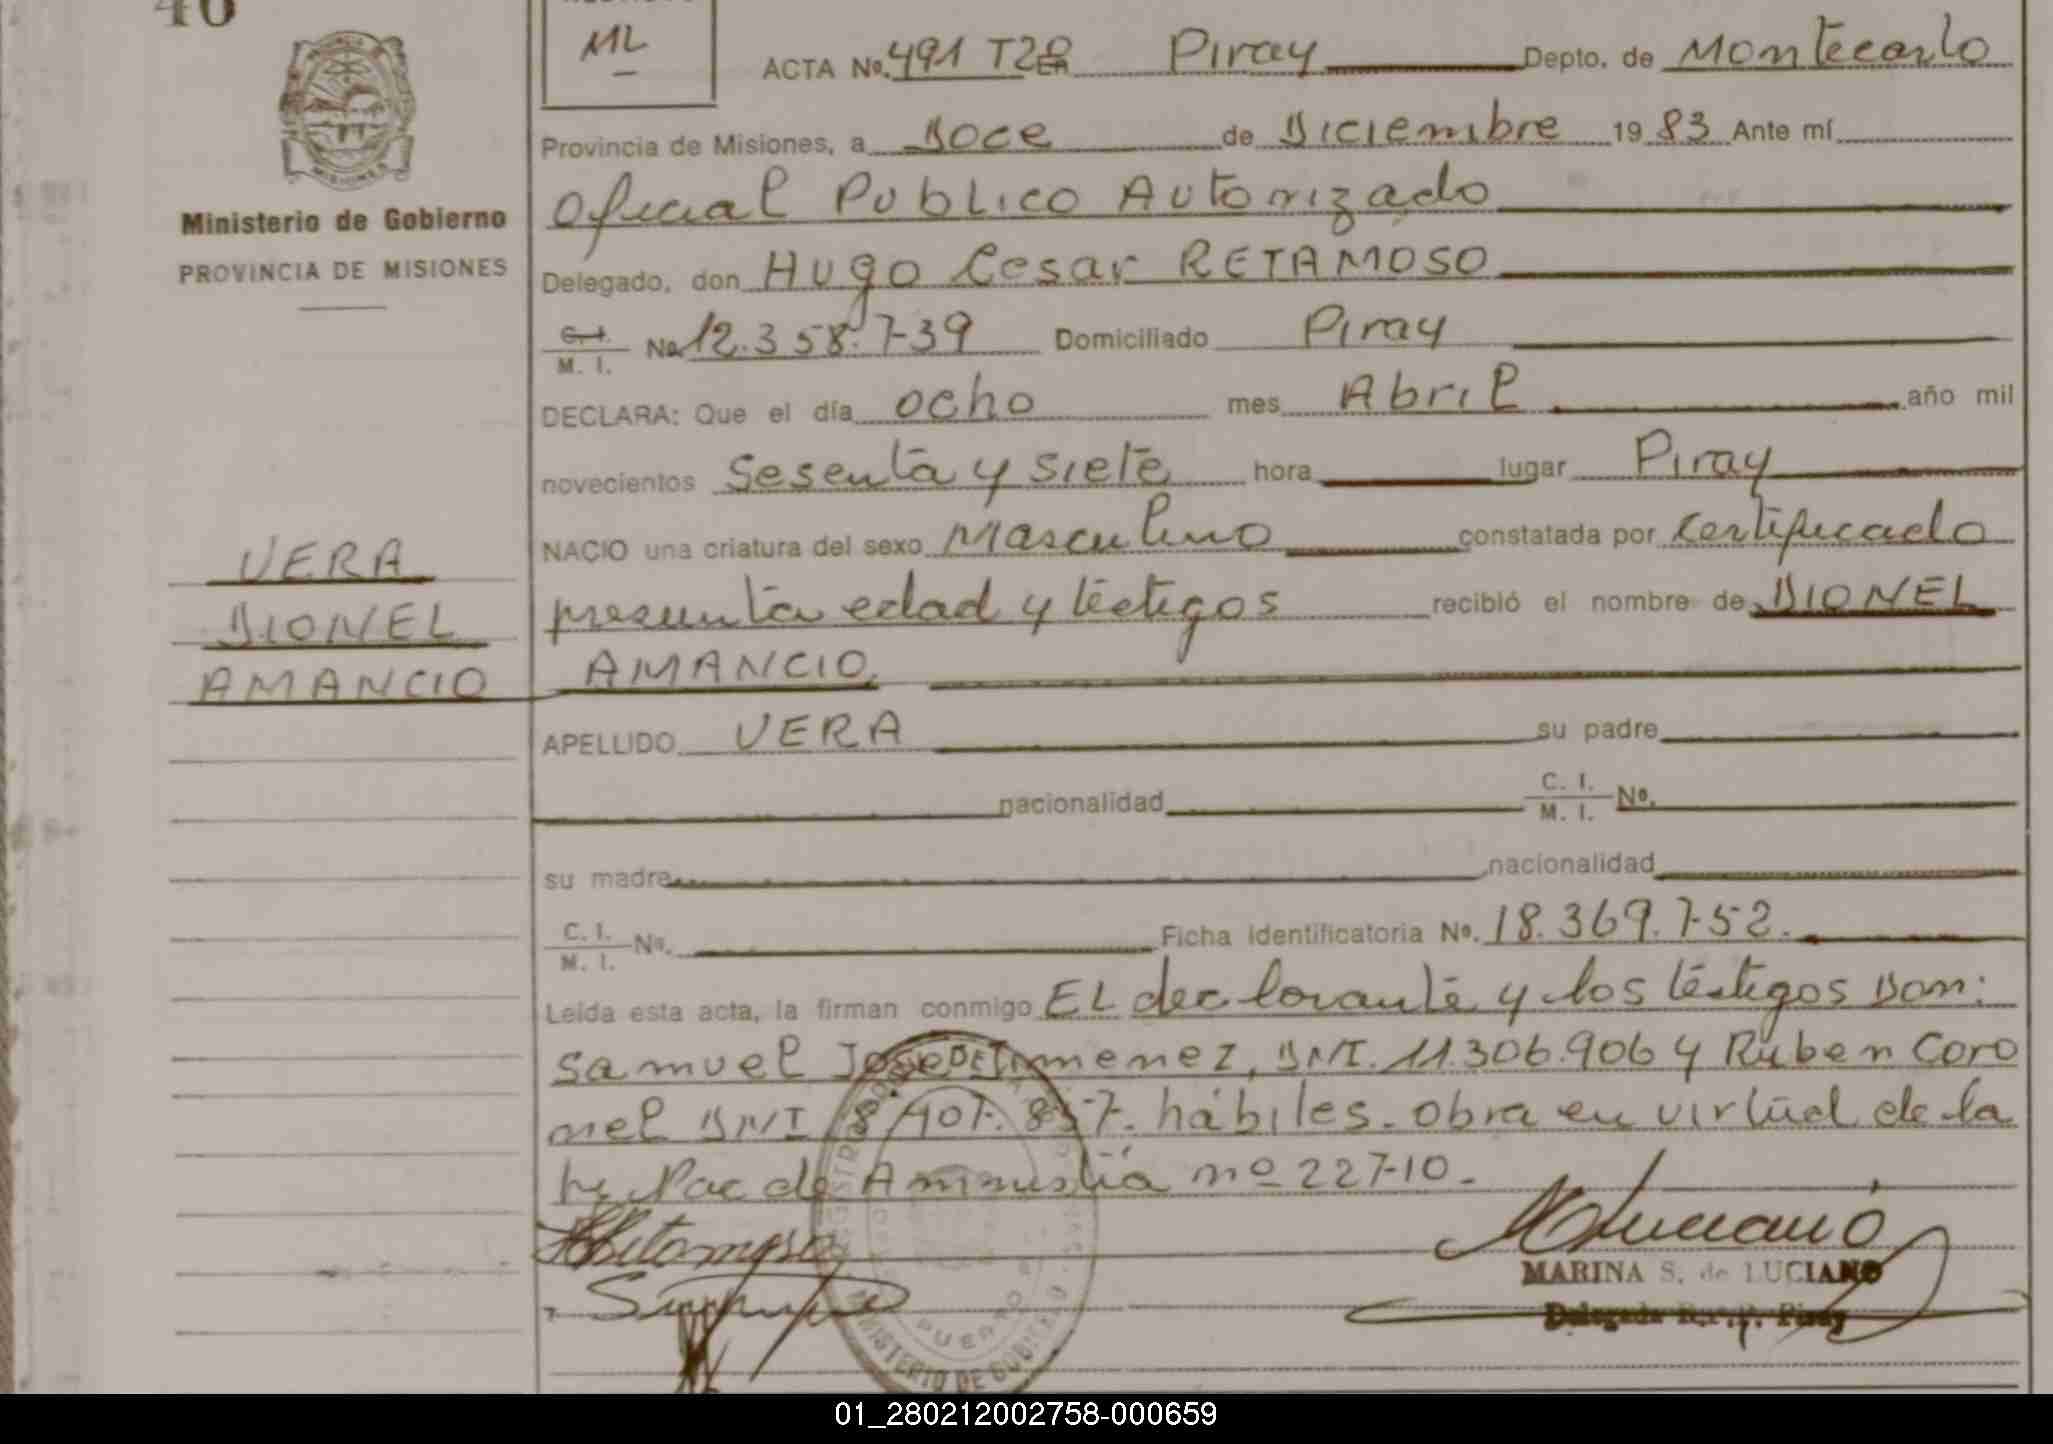 46
ML
ACTA No. 491 T2º Piray Depto. de Montecarlo
Provincia de Misiones, a Doce de Diciembre 1983 Ante mí
Oficial Publico Autorizado
Ministerio de Gobierno
PROVINCIA DE MISIONES
Delegado, don Hugo Cesar RETAMOSO
C. I. / M. I. No 12.358.739 Domiciliado Piray
DECLARA: Que el día ocho mes Abril año mil
novecientos sesenta y siete hora lugar Piray
NACIO una criatura del sexo Masculino constatada por certificado
VERA
DIONEL
AMANCIO
presunta edad y testigos recibió el nombre de DIONEL
AMANCIO.
APELLIDO VERA su padre
nacionalidad C. I. / M. I. No.
su madre nacionalidad
C. I. / M. I. No. Ficha Identificatoria No. 18.369.752.
Leida esta acta, la firman conmigo EL declarante y los testigos Don:
Samuel Jose Jimenez, DNI. 11.306.906 y Ruben Coro
nel DNI 8.407.857. hábiles. Obra en virtud de la
ley Nac de Amnistia nº 22710.
MARINA S. de LUCIANO
Delegada R.P.P. Piray
PUERTO
MINISTERIO DE GOBIERNO
01_280212002758-000659